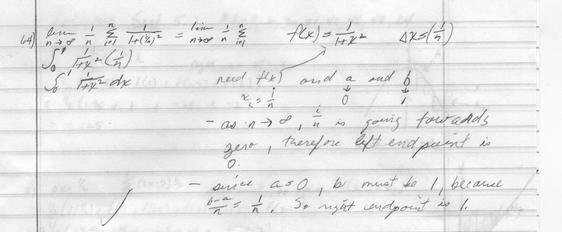 64) lim n→∞ 1/n Σ i=1 n 1/1+(i/n)² = lim n→∞ 1/n Σ i=1 n f(x) = 1/1+x² Δx = (1/n)
∫₀¹ 1/1+x² (1/n)
∫₀¹ 1/1+x² dx
need f(x) and a and b
xᵢ = i/n 0 1
- as n → ∞, i/n is going towards
zero, therefore left endpoint is
0.
- since a = 0, b must be 1, because
b-a/n = 1/n. So right endpoint is 1.